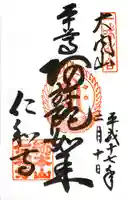 大内山
本尊
阿弥陀如来
仁和寺
平成十七年
二月十日